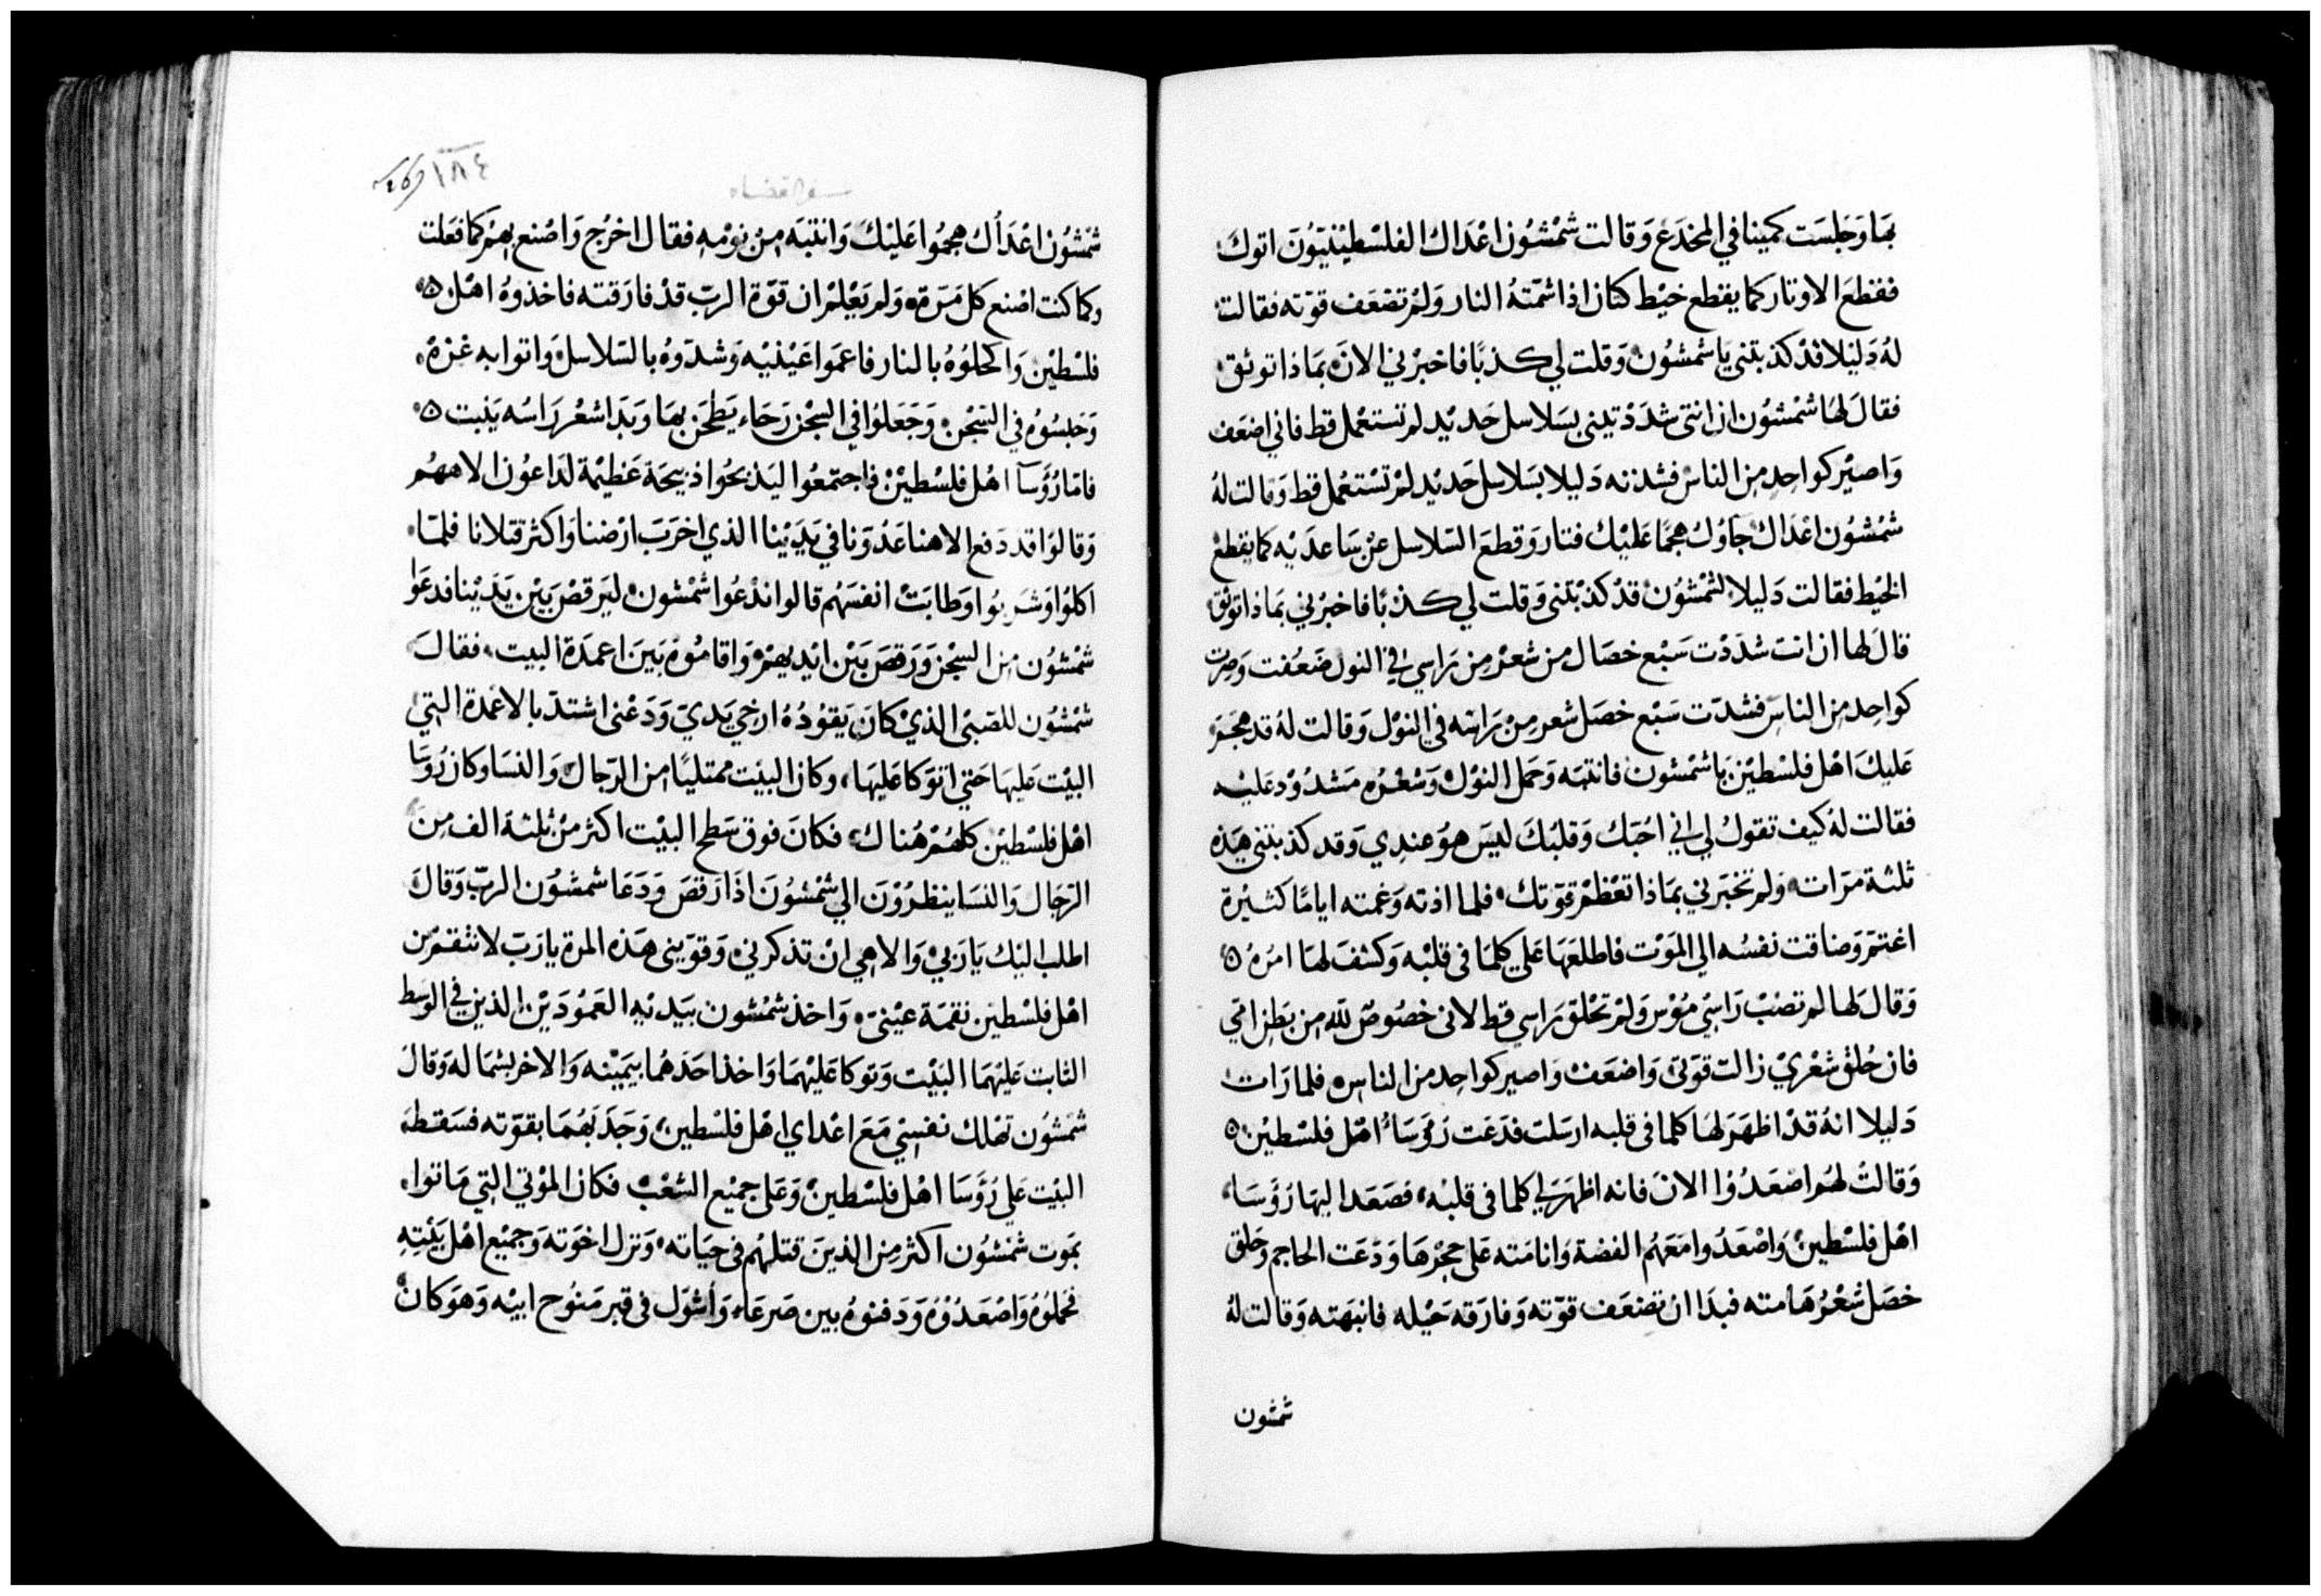 بهَا وَجَلسَت كمينا في المخدَع وَقالت شمْشوُن اعْدَاك الفلسْطيْنيّوُنَ اتوك
فقطعَ الاوتار كما يقطع خيْط كتان اذا شمّتهُ النار وَلمْ تضْعَف قوّته فقالت
لهُ دَليْلا قدْ كذبتنى يَا شمْشوُن وَقلت لي كذبًا فاخبرْني الانَ بمَاذا توثق
فقالَ لهَا شمْشوُن ان انتى شدَدْتيني بسَلاسل حَديْد لم تستعْمل قط فاني اضعَف
وَاصيْر كواحِد مِن الناس فشدته دَليلا بسَلاسل حَديْد لمْ تسْتعْمل قط وَقالت لهُ
شمْشوُن اعْدَاك جَاؤك هجمًا عَليْك فثار وَقطعَ السّلاسل عنْ سَاعدَيْه كما يقطعْ
الخيْط فقالت دَليلا لشمْشوُن قدْ كذبْتنى وَقلت لي كذبًا فاخبرْني بمَاذا توثق
قالَ لها ان انت شدَدْت سَبْع خصَال من شعرْ مِن رَاسي في النول ضعُفت وَصرت
كواحِد مِن الناس فشدّت سَبْع خصَل شعر مِنْ رَاسَه في النوْل وَقالت لهُ قد هجَمَ
عَليكَ اهْل فلسْطيْن يَا شمْشون فانتبَه وَحمَل النوْل وَشعْرُه مَشدُوْد عَليْه
فقالت لهُ كيف تقول لي اني احُبّك وَقلبُكَ ليسَ هوَ عندِي وَقد كذبتنى هَذه
ثلثة مرّات وَلم تخبرَني بمَاذا تعْظمْ قوّتك فلما اذته وَغمته ايامًا كثيْرة
اغتمّ وَضاقت نفسُه الي الموَْت فاطلعَهَا عَلي كلمَا فى قلبْه وَكشفَ لهَا امْرَهُ
وَقال لها لم تصْبْ رَاسِي مُوْس وَلمْ تحْلق رَاسي قط لانى خصُوصٌ لله مِن بَطن امّي
فان حُلقَ شعْري زالت قوّتي وَاضعَف وَاصير كواحِد من الناس فلما رَات
دَليلا انهُ قدْ اظهَرَ لهَا كلما فى قلبه ارسَلت فدَعَت رُؤسَاءُ اهْل فلسْطيْن
وَقالتْ لهُم اصْعَدُوُا الانَ فانه اظهَرَ لي كلما فى قلبْه فصَعَد اليهَا رُؤسَاء
اهْل فلسْطيْن وَاصْعَدُوا مَعَهُم الفضة وَانامَته عَلي حِجْرهَا وَدَعَت الحاجم وَحَلق
خصَل شعْرُ هَامته فبدَا انْ تضْعَف قوّته وَفارَقه حَيْله فانبهَته وَقالت لهُ
شمشون
سفر القضاه
١٨٤
شمْشوُن اعْدَأك هجمُوا عَليْكَ وَانتبَه مِنْ نومْه فقال اخرُج وَاصْنع بهمْ كما فعَلت
وكما كنت اصْنع كل مَرّة وَلم يَعْلمْ ان قوّة الربّ قدْ فارَقته فاخذوهُ اهْل
فلسْطيْن وَاكحلوُهُ بالنار فاعمَوا عَيْنيْه وَشدّوهُ بالسّلاسل وَاتوا به غزةْ
وَحَبسُوهُ في السّجْن وَجَعَلوُا في السِجْن رَحَاء يَطحَن بهَا وَبدَا شعْر رَاسُه يَنبت
فامّا رُؤَسآ اهْل فلسْطيْنْ فاجتمعُوا ليَذبحُوا ذبيحَة عَظيْمة لدَاعوُن الاههُم
وَقالوُا قد دَفع الاهنا عَدُوّنا في يَديْنا الذي اخرَبَ ارْضنا وَاكثر قتلانا فلمّا
اكلوُا وَشرَبوُا وَطابَتْ انفسَهُم قالوا ندْعُوا شمْشون ليَرقصْ بَيْن يَدَيْنا فدعَوا
شمْشوُن مِن السجْن وَرَقصَ بَيْن ايْديهمْ وَاقامُوهُ بَينَ اعمدَة البيت فقالَ
شمْشوُن للصَبى الذيْ كانَ يَقوُدُهُ ارخي يَديّ وَدَعْنى اشتدّ بالاعْمدَة التِي
البيْت عَليهَا حَتي اتوَكا عَليهَا وكان البيَْت ممتليًا من الرّجال وَالنسَا وكان رُوسَا
اهْل فلسْطيْن كلهُمْ هُناك فكانَ فوق سَطح البيْت اكثر منْ ثلثة الف مِنَ
الرّجَال وَالنسَا ينظرُوْنَ الي شمْشوُنَ اذَا رَقصَ وَدَعَا شمشوُن الربّ وَقالَ
اطلب اليْك يَا رَبيْ وَالاهي انْ تذكرني وَقوّيني هَذه المرة يارَبّ لانتقمْ من
اهْل فلسْطين نقمَة عيْنىّ وَاخذ شمْشون بيَديْه العَمُودَيْن الذين في الوَسط
الثابت عَليْهَما البيْت وَتوكا عَليْهمَا وَاخذ احَدَهُما بيَميْنه وَالاخر بشمَاله وَقال
شمْشوُن تهْلك نفسِي مَعَ اعْداي اهْل فلسْطين وَجَذبَهُمَا بقوّته فسَقط
البيْت عَلي رُؤسَا اهْل فلسْطينْ وَعَلي جميْع الشعْبْ فكان الموْتي التي مَاتوا
بمَوت شمْشوُن اكثر مِن الذينَ قتلهُم في حيَاته وَنزل اخوَته وَجميْع اهْل بَيْتِهِ
فحملوُهُ وَاصْعَدُوُهُ وَدَفنوهُ بين صَرعَاء وَأشوَل في قبر مَنوُح ابيْه وَهوَ كانَ